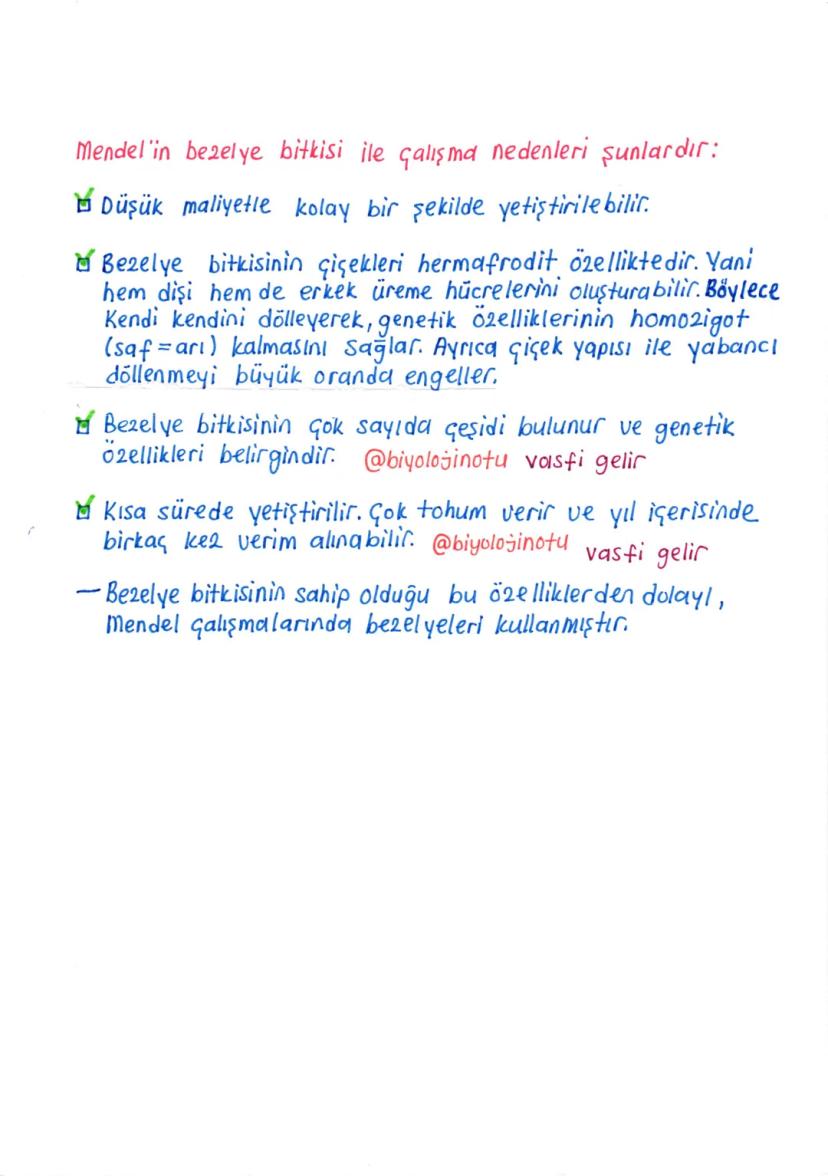 Mendel'in bezelye bitkisi ile çalışma nedenleri şunlardır:
Düşük maliyetle kolay bir şekilde yetiştirilebilir.
Bezelye bitkisinin çiçekleri hermafrodit özelliktedir. Yani
hem dişi hem de erkek üreme hücrelerini oluşturabilir. Böylece
Kendi kendini dölleyerek, genetik özelliklerinin homozigot
(saf=arı) kalmasını sağlar. Ayrıca çiçek yapısı ile yabancı
döllenmeyi büyük oranda engeller.
Bezelye bitkisinin çok sayıda çeşidi bulunur ve genetik
özellikleri belirgindir. @biyolojinotu vasfi gelir
Kısa sürede yetiştirilir. Çok tohum verir ve yıl içerisinde
birkaç kez verim alınabilir. @biyolojinotu vasfi gelir
— Bezelye bitkisinin sahip olduğu bu özelliklerden dolayı,
Mendel çalışmalarında bezelyeleri kullanmıştır.